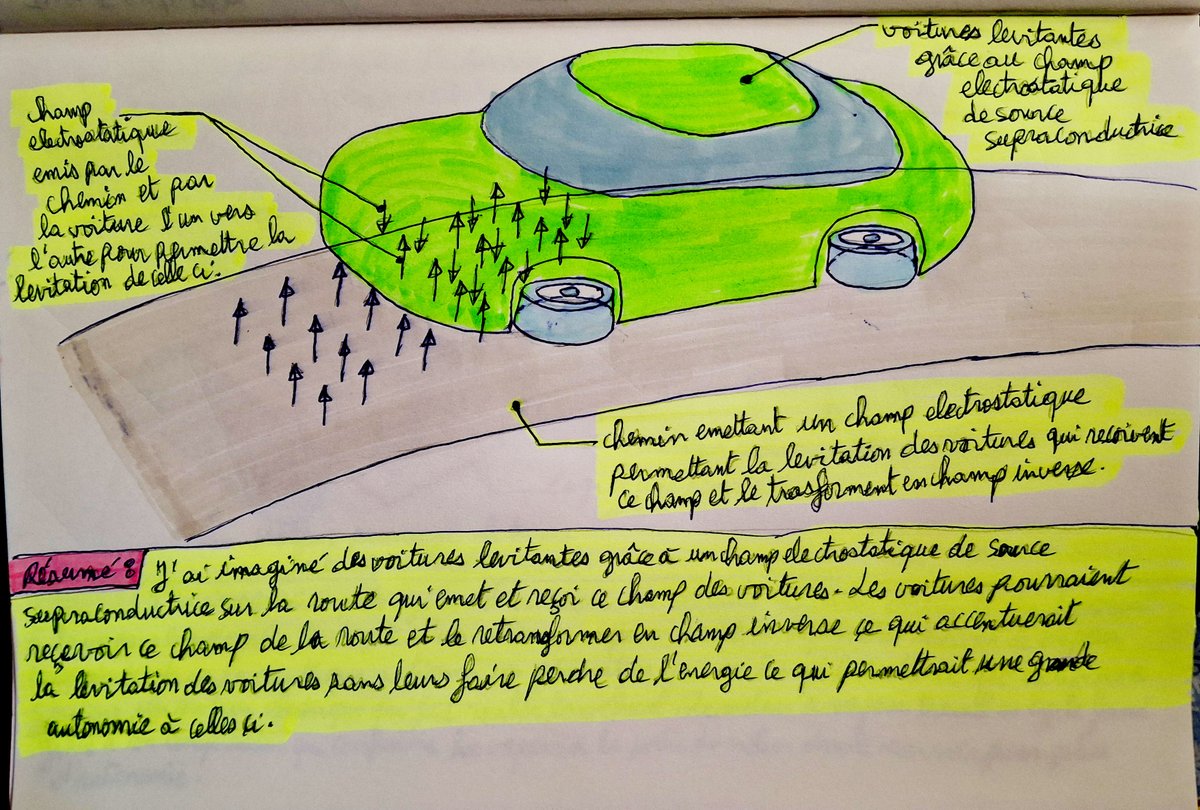 champ
electrostatique
emis par le
chemin et par
la voiture l'un vers
l'autre pour permettre la
levitation de celle ci.
voitures levitantes
grâce au champ
electrostatique
de source
supraconductrice
chemin emettant un champ electrostatique
permettant la levitation des voitures qui recoivent
ce champ et le trasforment en champ inverse.
Résumé : J'ai imaginé des voitures levitantes grâce à un champ electrostatique de source
supraconductrice sur la route qui emet et reçoi ce champ des voitures. Les voitures pourraient
reçevoir ce champ de la route et le retransformer en champ inverse ce qui accentuerait
la levitation des voitures sans leurs faire perdre de l'energie ce qui permettrait une grande
autonomie à celles ci.